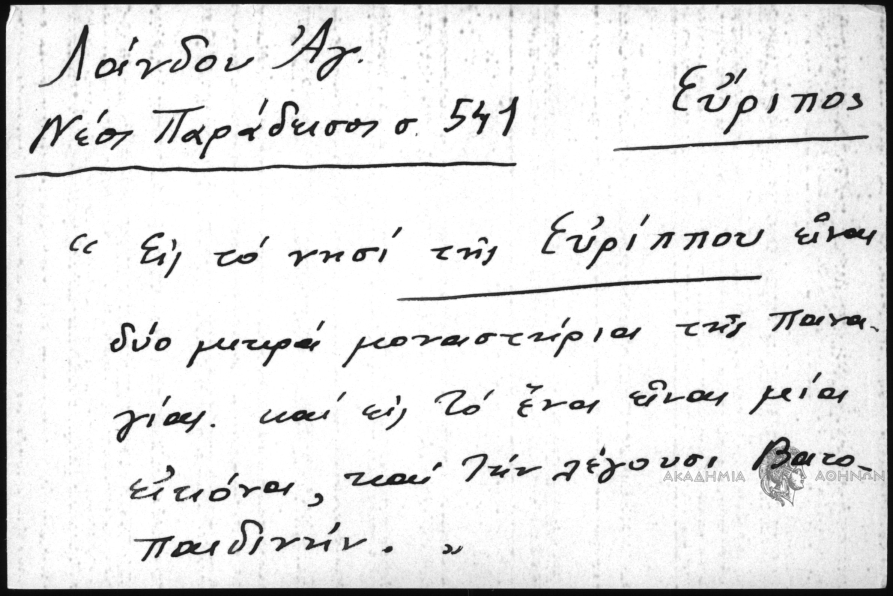 Λάνδου Ἀγ.
Νέος Παράδεισος σ. 541
Εὔριπος
“ Εἰς τό νησί τῆς Εὐρίππου εἶναι
δύο μικρά μοναστήρια τῆς Πανα-
γίας. καί εἰς τό ἕνα εἶναι μία
εἰκόνα, καί τήν λέγουσι Βατο-
παιδινήν. „
ΑΚΑΔΗΜΙΑ ΑΘΗΝΩΝ